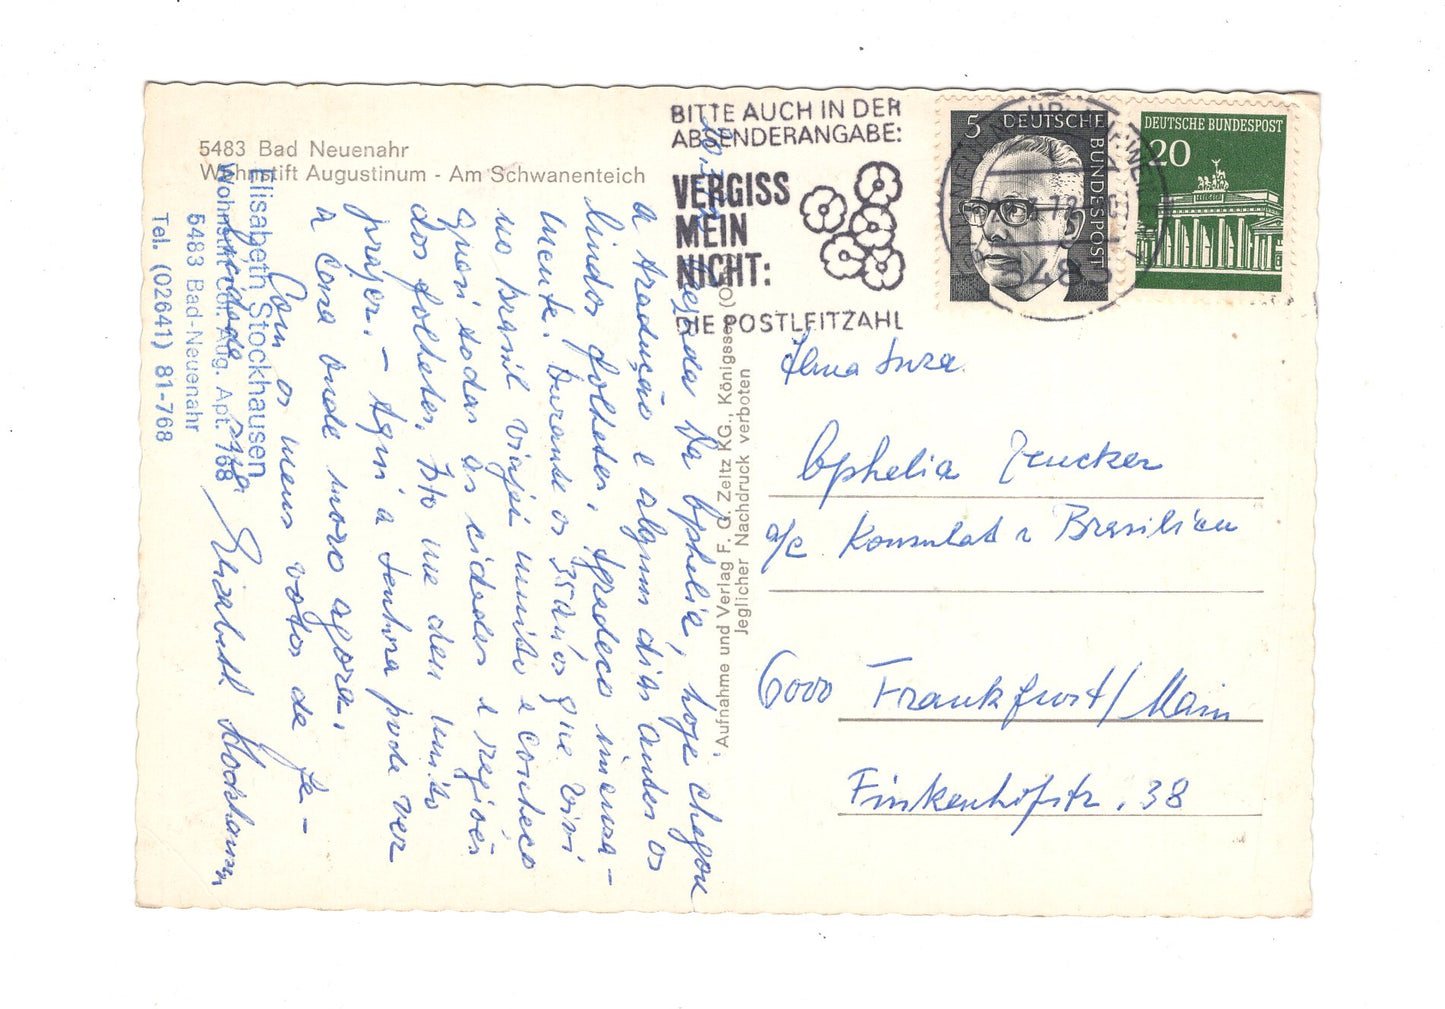 5483 Bad Neuenahr
Wohnstift Augustinum - Am Schwanenteich
BITTE AUCH IN DER
ABSENDERANGABE:
VERGISS
MEIN
NICHT:
DIE POSTLEITZAHL
5 DEUTSCHE
BUNDESPOST
DEUTSCHE BUNDESPOST
20
5483
Elisabeth Stockhausen
Wohnstift Col. Aug. Apt. 768
5483 Bad-Neuenahr
Tel. (02641) 81-768
Da Ophelia, hoje chegou
a tradução e alguns dias antes os
lindos folhetos. Agradeco imensa-
mente. Durante os 35 anos que vivi
no brasil viajei muito e conheco
quasi todas as cidades e regiões
dos folhetos. Isto me deu muito
prazer. - Aqui a senhora pode ver
a casa onde moro agora.
Com os meus votos de fe-
licidade
Elisabeth Stockhausen
Aufnahme und Verlag F. G. Zeitz KG., Königssee
Jeglicher Nachdruck verboten
Ilma Snra.
Ophelia
a/c Konsulat v Brasilien
6000 Frankfurt/Main
Finkenhofstr. 38